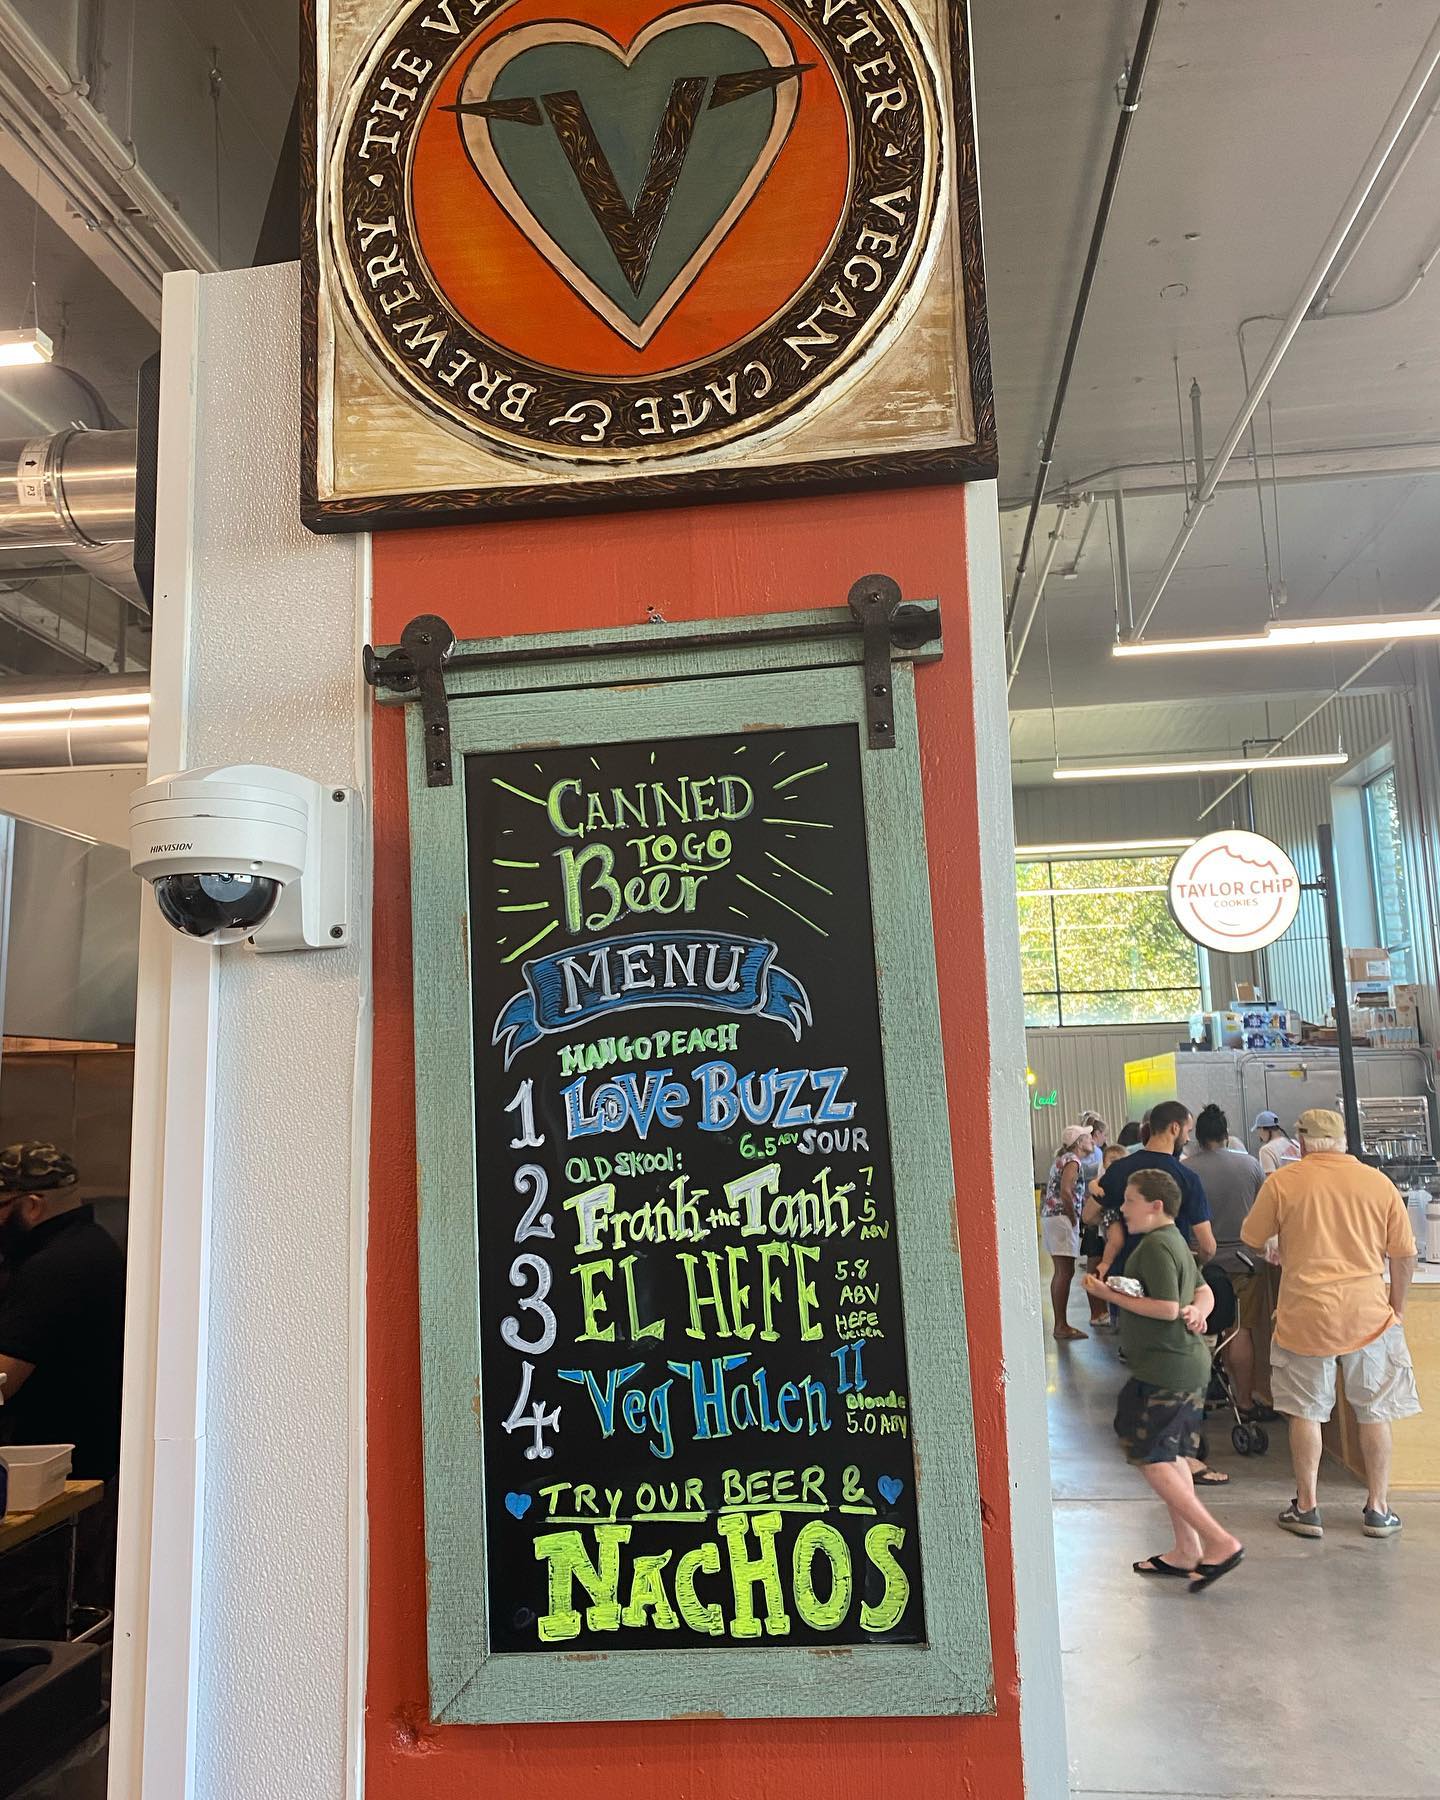 · THE
· VEGAN CAFE & BREWERY ·
V
P3
HIKVISION
CANNED
TO GO
Beer
MENU
MANGO PEACH
1 LOVE BUZZ
6.5 ABV SOUR
OLD SKOOL:
2 Frank the Tank 7.5 ABV
3 EL HEFE 5.8
ABV
HEFE
weisen
4 Veg Halen II
Blonde
5.0 ABV
TRY OUR BEER &
NACHOS
TAYLOR CHiP
COOKIES